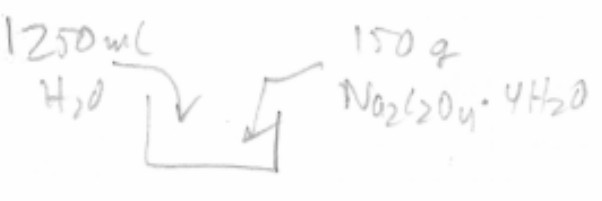 1250 mL
H₂O
150 g
Na₂C₂O₄ · 4H₂O